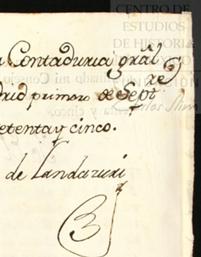 CENTRO DE
ESTUDIOS
DE HISTORIA
Contaduria gral
drid primero de Septre
etenta y cinco.
de Landazuri